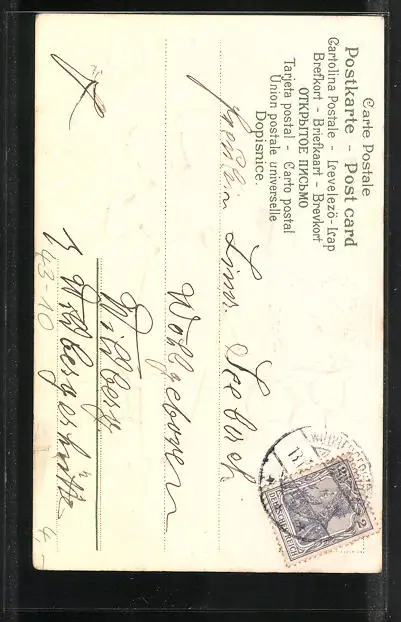 Carte Postale
Postkarte - Post card
Cartolina Postale - Levelező-Lap
Brefkort - Briefkaart - Brevkort
ОТКРЫТОЕ ПИСЬМО
Tarjeta postal - Carto postal
Union postale universelle
Dopisnice.
Fräulein Lina Seebach
Wohlgeboren
Wildberg
Wildbergerhütte
43-10
4,-
2